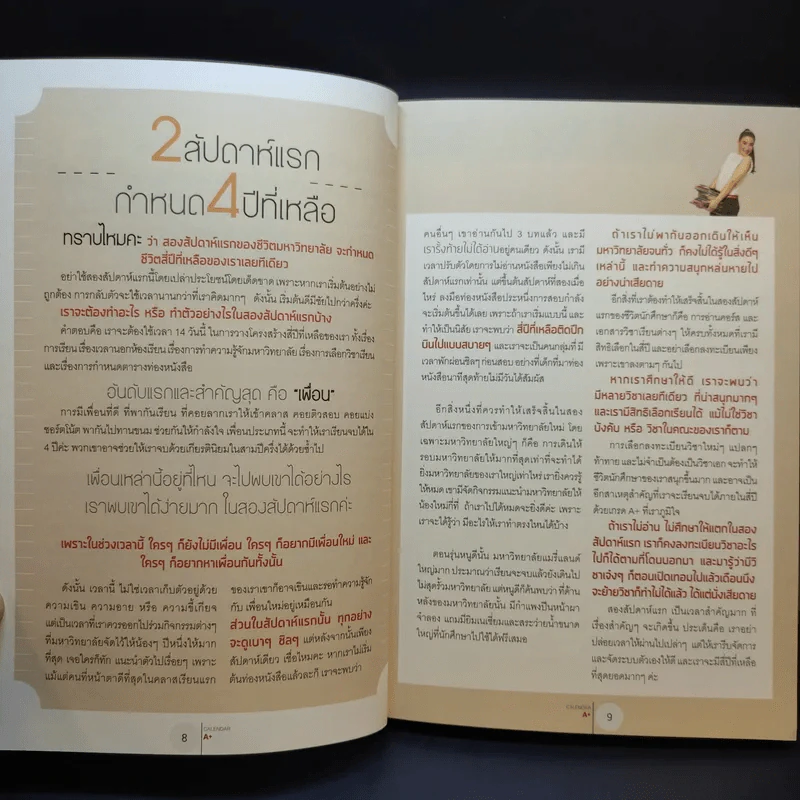 2 สัปดาห์แรก
กำหนด 4 ปีที่เหลือ
ทราบไหมคะ ว่า สองสัปดาห์แรกของชีวิตมหาวิทยาลัย จะกำหนด
ชีวิตสี่ปีที่เหลือของเราเลยทีเดียว
อย่าใช้สองสัปดาห์แรกนี้โดยเปล่าประโยชน์โดยเด็ดขาด เพราะหากเราเริ่มต้นอย่างไม่
ถูกต้อง การกลับตัวจะใช้เวลานานกว่าที่เราคิดมากๆ ดังนั้น เริ่มต้นดีมีชัยไปกว่าครึ่งค่ะ
เราจะต้องทำอะไร หรือ ทำตัวอย่างไรในสองสัปดาห์แรกบ้าง
คำตอบคือ เราจะต้องใช้เวลา 14 วันนี้ ในการวางโครงสร้างสี่ปีที่เหลือของเรา ทั้งเรื่อง
การเรียน เรื่องเวลานอกห้องเรียน เรื่องการทำความรู้จักมหาวิทยาลัย เรื่องการเลือกวิชาเรียน
และเรื่องการกำหนดตารางท่องหนังสือ
อันดับแรกและสำคัญสุด คือ "เพื่อน"
การมีเพื่อนที่ดี ที่พากันเรียน ที่คอยลากเราให้เข้าคลาส คอยติวสอบ คอยแบ่ง
ชอร์ตโน้ต พากันไปทานขนม ช่วยกันให้กำลังใจ เพื่อนประเภทนี้ จะทำให้เราเรียนจบได้ใน
4 ปีค่ะ พวกเขาอาจช่วยให้เราจบด้วยเกียรตินิยมในสามปีครึ่งได้ด้วยซ้ำไป
เพื่อนเหล่านี้อยู่ที่ไหน จะไปพบเขาได้อย่างไร
เราพบเขาได้ง่ายมาก ในสองสัปดาห์แรกค่ะ
เพราะในช่วงเวลานี้ ใครๆ ก็ยังไม่มีเพื่อน ใครๆ ก็อยากมีเพื่อนใหม่ และ
ใครๆ ก็อยากหาเพื่อนกันทั้งนั้น
ดังนั้น เวลานี้ ไม่ใช่เวลาเก็บตัวอยู่ด้วย
ความเขิน ความอาย หรือ ความขี้เกียจ
แต่เป็นเวลาที่เราควรออกไปร่วมกิจกรรมต่างๆ
ที่มหาวิทยาลัยจัดไว้ให้น้องๆ ปีหนึ่งให้มาก
ที่สุด เจอใครก็ทัก แนะนำตัวไปเรื่อยๆ เพราะ
แม้แต่คนที่หน้าตาดีที่สุดในคลาสเรียนแรก
ของเราเขาก็อาจเขินและรอทำความรู้จัก
กับ เพื่อนใหม่อยู่เหมือนกัน
ส่วนในสัปดาห์แรกนั้น ทุกอย่าง
จะดูเบาๆ ชิลๆ แต่หลังจากนั้นเพียง
สัปดาห์เดียว เชื่อไหมคะ หากเราไม่เริ่ม
ต้นท่องหนังสือแล้วล่ะก็ เราจะพบว่า
8
CALENDAR
A+
คนอื่นๆ เขาอ่านกันไป 3 บทแล้ว และมี
เรารั้งท้ายไม่ได้อ่านอยู่คนเดียว ดังนั้น เรามี
เวลาปรับตัวโดยการไม่อ่านหนังสือเพียงไม่เกิน
สัปดาห์แรกเท่านั้น แต่ขึ้นต้นสัปดาห์ที่สองเมื่อ
ไหร่ ลงมือท่องหนังสือประหนึ่งการสอบกำลัง
จะเริ่มต้นขึ้นได้เลย เพราะถ้าเราเริ่มแบบนี้ และ
ทำให้เป็นนิสัย เราจะพบว่า สี่ปีที่เหลือติดปีก
บินไปแบบสบายๆ และเราจะเป็นคนกลุ่มที่ มี
เวลาพักผ่อนชิลๆ ก่อนสอบ อย่างที่เด็กที่มาท่อง
หนังสือนาทีสุดท้ายไม่มีวันได้สัมผัส
อีกสิ่งหนึ่งที่ควรทำให้เสร็จสิ้นในสอง
สัปดาห์แรกของการเข้ามหาวิทยาลัยใหม่ โดย
เฉพาะมหาวิทยาลัยใหญ่ๆ ก็คือ การเดินให้
รอบมหาวิทยาลัยให้มากที่สุดเท่าที่จะทำได้
ยิ่งมหาวิทยาลัยของเราใหญ่เท่าไหร่ เรายิ่งควรรู้
ให้หมด เขามีจัดกิจกรรมแนะนำมหาวิทยาลัยให้
น้องใหม่กี่ที่ ถ้าเราไปได้หมดจะยิ่งดีค่ะ เพราะ
เราจะได้รู้ว่า มีอะไรให้เราทำตรงไหนได้บ้าง
ตอนรุ่นหนูดีนั้น มหาวิทยาลัยแมรี่แลนด์
ใหญ่มาก ประมาณว่าเรียนจะจบแล้วยังเดินไป
ไม่สุดรั้วมหาวิทยาลัย แต่หนูดีก็ค้นพบว่า ที่ด้าน
หลังของมหาวิทยาลัยนั้น มีกำแพงปีนหน้าผา
จำลอง แถมมียิมเนเซียมและสระว่ายน้ำขนาด
ใหญ่ที่นักศึกษาไปใช้ได้ฟรีเสมอ
ถ้าเราไม่พากันออกเดินให้เห็น
มหาวิทยาลัยจนทั่ว ก็คงไม่ได้รู้ในสิ่งดีๆ
เหล่านี้ และทำความสนุกหล่นหายไป
อย่างน่าเสียดาย
อีกสิ่งที่เราต้องทำให้เสร็จสิ้นในสองสัปดาห์
แรกของชีวิตนักศึกษาก็คือ การอ่านคอร์ส และ
เอกสารวิชาเรียนต่างๆ ให้ครบทั้งหมดที่เรามี
สิทธิเลือกในสี่ปี และอย่าเลือกลงทะเบียนเพียง
เพราะเขาลงตามๆ กันไป
หากเราศึกษาให้ดี เราจะพบว่า
มีหลายวิชาเลยทีเดียว ที่น่าสนุกมากๆ
และเรามีสิทธิเลือกเรียนได้ แม้ไม่ใช่วิชา
บังคับ หรือ วิชาในคณะของเราก็ตาม
การเลือกลงทะเบียนวิชาใหม่ๆ แปลกๆ
ท้าทาย และไม่จำเป็นต้องเป็นวิชาเอก จะทำให้
ชีวิตนักศึกษาของเราสนุกขึ้นมาก และอาจเป็น
อีกสาเหตุสำคัญที่เราจะเรียนจบได้ภายในสี่ปี
ด้วยเกรด A+ ที่เราภูมิใจ
ถ้าเราไม่อ่าน ไม่ศึกษาให้แตกในสอง
สัปดาห์แรก เราก็คงลงทะเบียนวิชาอะไร
ไปก็ได้ตามที่โดนบอกมา และมารู้ว่ามีวิ
ชาเจ๋งๆ ก็ตอนเปิดเทอมไปแล้วเดือนนึง
จะย้ายวิชาก็ทำไม่ได้แล้ว ได้แต่นั่งเสียดาย
สองสัปดาห์แรก เป็นเวลาสำคัญมาก ที่
เรื่องสำคัญๆ จะเกิดขึ้น ประเด็นคือ เราอย่า
ปล่อยเวลาให้ผ่านไปเปล่าๆ แต่ให้เรารีบจัดการ
และจัดระบบตัวเองให้ดี และเราจะมีสี่ปีที่เหลือ
ที่สุดยอดมากๆ ค่ะ
CALENDAR
A+
9